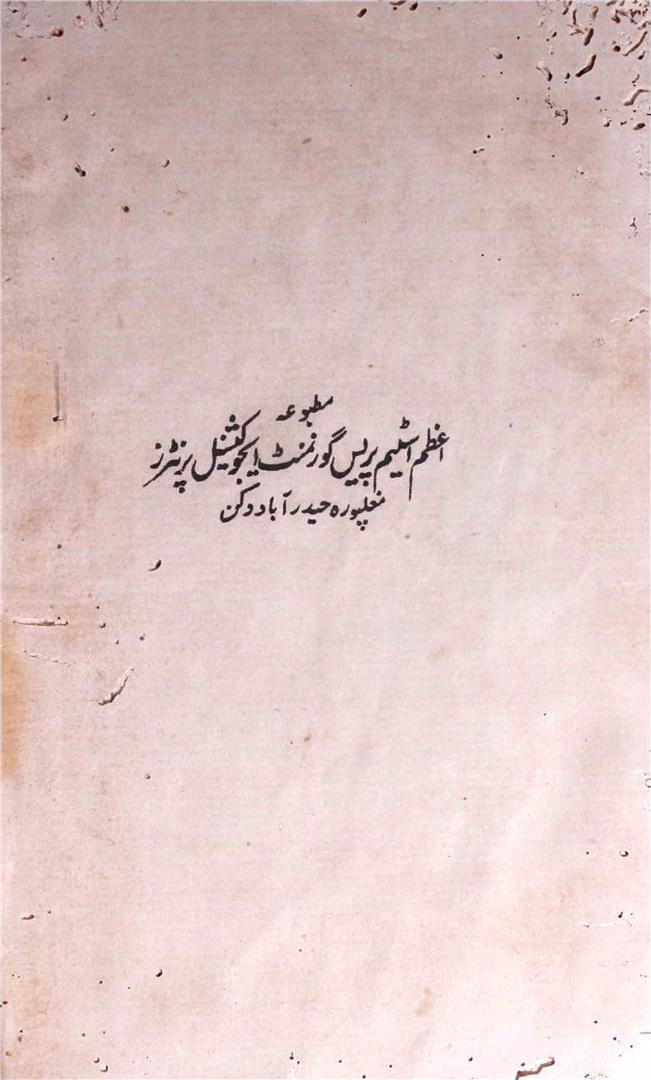 مطبوعہ
اعظم اسٹیم پریس گورنمنٹ ایجوکیشنل پرنٹرز
مغلپورہ حیدرآباد دکن